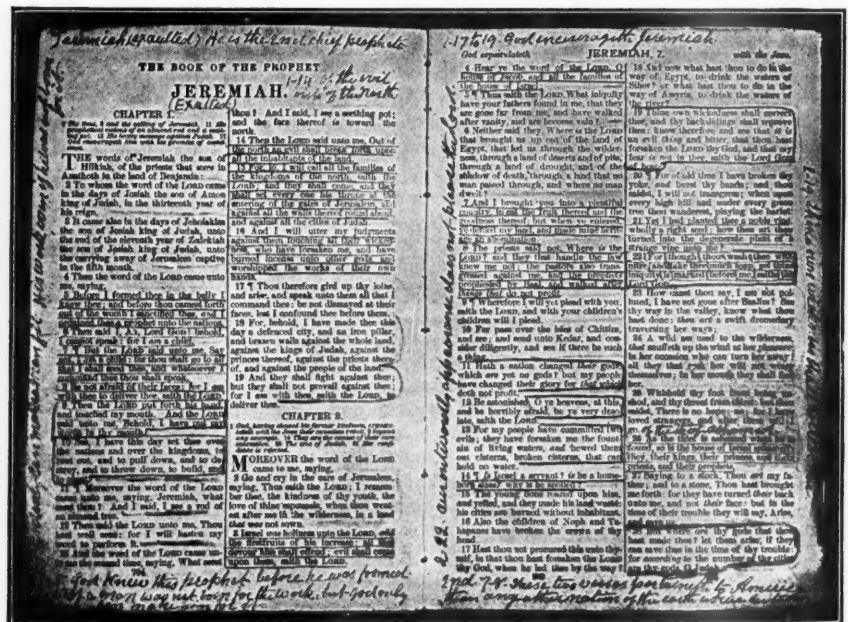 Jeremiah (exalted) He is the 2nd chief prophet
THE BOOK OF THE PROPHET
JEREMIAH.
(Exalted)
1-14 of the evil
out of the North
CHAPTER 1.
THE words of Jeremiah the son of
Hilkiah, of the priests that were in
Anathoth in the land of Benjamin:
2 To whom the word of the LORD came
in the days of Josiah the son of Amon
king of Judah, in the thirteenth year of
his reign.
3 It came also in the days of Jehoiakim
the son of Josiah king of Judah, unto
the end of the eleventh year of Zedekiah
the son of Josiah king of Judah, unto
the carrying away of Jerusalem captive
in the fifth month.
4 Then the word of the LORD came unto
me, saying,
5 Before I formed thee in the belly I
knew thee; and before thou camest forth
out of the womb I sanctified thee, and I
ordained thee a prophet unto the nations.
6 Then said I, Ah, Lord GOD! behold,
I cannot speak: for I am a child.
7 ¶ But the LORD said unto me, Say
not, I am a child: for thou shalt go to all
that I shall send thee, and whatsoever I
command thee thou shalt speak.
8 Be not afraid of their faces: for I am
with thee to deliver thee, saith the LORD.
9 Then the LORD put forth his hand,
and touched my mouth. And the LORD
said unto me, Behold, I have put my
words in thy mouth.
10 See, I have this day set thee over
the nations and over the kingdoms, to
root out, and to pull down, and to de-
stroy, and to throw down, to build, and
11 ¶ Moreover the word of the LORD
came unto me, saying, Jeremiah, what
seest thou? And I said, I see a rod of
12 Then said the LORD unto me, Thou
hast well seen: for I will hasten my
word to perform it.
13 And the word of the LORD came un-
to me the second time, saying, What seest
thou? And I said, I see a seething pot;
and the face thereof is toward the
north.
14 Then the LORD said unto me, Out of
the north an evil shall break forth upon
all the inhabitants of the land.
15 For, lo, I will call all the families of
the kingdoms of the north, saith the
LORD; and they shall come, and they
shall set every one his throne at the
entering of the gates of Jerusalem, and
against all the walls thereof round about,
and against all the cities of Judah.
16 And I will utter my judgments
against them touching all their wicked-
ness, who have forsaken me, and have
burned incense unto other gods, and
worshipped the works of their own
hands.
17 ¶ Thou therefore gird up thy loins,
and arise, and speak unto them all that I
command thee: be not dismayed at their
faces, lest I confound thee before them.
18 For, behold, I have made thee this
day a defenced city, and an iron pillar,
and brazen walls against the whole land,
against the kings of Judah, against the
princes thereof, against the priests there-
of, and against the people of the land.
19 And they shall fight against thee;
but they shall not prevail against thee;
for I am with thee, saith the LORD, to
deliver thee.
CHAPTER 2.
MOREOVER the word of the LORD
came to me, saying,
2 Go and cry in the ears of Jerusalem,
saying, Thus saith the LORD; I remem-
ber thee, the kindness of thy youth, the
love of thine espousals, when thou went-
est after me in the wilderness, in a land
that was not sown.
3 Israel was holiness unto the LORD, and
the firstfruits of his increase: all that
devour him shall offend; evil shall come
upon them, saith the LORD.
God knew this prophet before he was formed
a man was not born for the work, but God only
1-17 to 19. God encourageth Jeremiah
JEREMIAH, 2.
4 Hear ye the word of the LORD, O
house of Jacob, and all the families of
the house of Israel:
5 ¶ Thus saith the LORD, What iniquity
have your fathers found in me, that they
are gone far from me, and have walked
after vanity, and are become vain?
6 Neither said they, Where is the LORD
that brought us up out of the land of
Egypt, that led us through the wilder-
ness, through a land of deserts and of pits,
through a land of drought, and of the
shadow of death, through a land that no
man passed through, and where no man
dwelt?
7 And I brought you into a plentiful
country, to eat the fruit thereof and the
goodness thereof; but when ye entered,
ye defiled my land, and made mine heri-
tage an abomination.
8 The priests said not, Where is the
LORD? and they that handle the law
knew me not: the pastors also trans-
gressed against me, and the prophets
prophesied by Baal, and walked after
things that do not profit.
9 ¶ Wherefore I will yet plead with you,
saith the LORD, and with your children's
children will I plead.
10 For pass over the isles of Chittim,
and see; and send unto Kedar, and con-
sider diligently, and see if there be such
a thing.
11 Hath a nation changed their gods,
which are yet no gods? but my people
have changed their glory for that which
doth not profit.
12 Be astonished, O ye heavens, at this,
and be horribly afraid, be ye very deso-
late, saith the LORD.
13 For my people have committed two
evils; they have forsaken me the fount-
ain of living waters, and hewed them
out cisterns, broken cisterns, that can
hold no water.
14 ¶ Is Israel a servant? is he a home-
born slave? why is he spoiled?
15 The young lions roared upon him,
and yelled, and they made his land waste:
his cities are burned without inhabitant.
16 Also the children of Noph and Ta-
hapanes have broken the crown of thy
head.
17 Hast thou not procured this unto thy-
self, in that thou hast forsaken the LORD
thy God, when he led thee by the way?
18 And now what hast thou to do in the
way of Egypt, to drink the waters of
Sihor? or what hast thou to do in the
way of Assyria, to drink the waters of
the river?
19 Thine own wickedness shall correct
thee, and thy backslidings shall reprove
thee: know therefore and see that it is
an evil thing and bitter, that thou hast
forsaken the LORD thy God, and that my
fear is not in thee, saith the Lord GOD
of hosts.
20 ¶ For of old time I have broken thy
yoke, and burst thy bands; and thou
saidst, I will not transgress; when upon
every high hill and under every green
tree thou wanderest, playing the harlot.
21 Yet I had planted thee a noble vine,
wholly a right seed: how then art thou
turned into the degenerate plant of a
strange vine unto me?
22 For though thou wash thee with
nitre, and take thee much soap, yet thine
iniquity is marked before me, saith the
Lord GOD.
23 How canst thou say, I am not pol-
luted, I have not gone after Baalim? See
thy way in the valley, know what thou
hast done: thou art a swift dromedary
traversing her ways;
24 A wild ass used to the wilderness,
that snuffeth up the wind at her pleasure;
in her occasion who can turn her away?
all they that seek her will not weary
themselves; in her month they shall find
her.
25 Withhold thy foot from being unshod,
and thy throat from thirst: but thou
saidst, There is no hope: no; for I have
loved strangers, and after them will I
26 As the thief is ashamed when he is
found, so is the house of Israel ashamed;
they, their kings, their princes, and their
priests, and their prophets,
27 Saying to a stock, Thou art my fa-
ther; and to a stone, Thou hast brought
me forth: for they have turned their back
unto me, and not their face: but in the
time of their trouble they will say, Arise,
and save us.
28 But where are thy gods that thou
hast made thee? let them arise, if they
can save thee in the time of thy trouble:
for according to the number of thy cities
are thy gods, O Judah.
2-22 an outwardly appearance does not please the Lord.
2nd 7-8. These two verses pertaineth to America
than any other nation of the earth